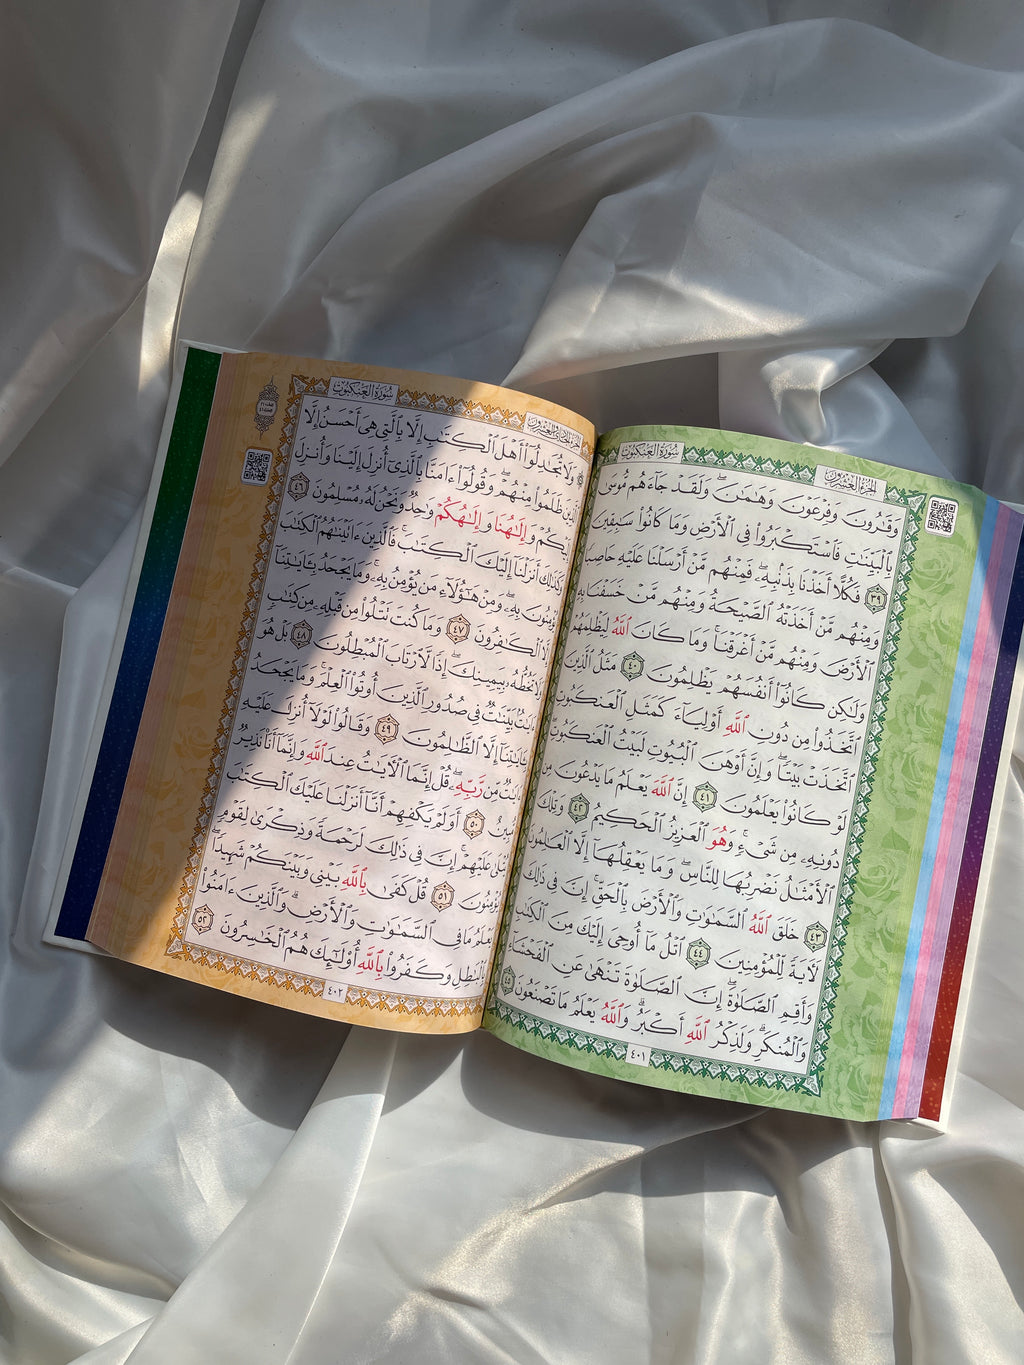 سُورَةُ العَنكَبُوتِ
الجُزْءُ العِشْرُونَ
وَقَٰرُونَ وَفِرۡعَوۡنَ وَهَٰمَٰنَۖ وَلَقَدۡ جَآءَهُم مُّوسَىٰ
بِٱلۡبَيِّنَٰتِ فَٱسۡتَكۡبَرُواْ فِي ٱلۡأَرۡضِ وَمَا كَانُواْ سَٰبِقِينَ
٣٩ فَكُلًّا أَخَذۡنَا بِذَنۢبِهِۦۖ فَمِنۡهُم مَّنۡ أَرۡسَلۡنَا عَلَيۡهِ حَاصِبٗا
وَمِنۡهُم مَّنۡ أَخَذَتۡهُ ٱلصَّيۡحَةُ وَمِنۡهُم مَّنۡ خَسَفۡنَا بِهِ
ٱلۡأَرۡضَ وَمِنۡهُم مَّنۡ أَغۡرَقۡنَاۚ وَمَا كَانَ ٱللَّهُ لِيَظۡلِمَهُمۡ
وَلَٰكِن كَانُوٓاْ أَنفُسَهُمۡ يَظۡلِمُونَ ٤٠ مَثَلُ ٱلَّذِينَ
ٱتَّخَذُواْ مِن دُونِ ٱللَّهِ أَوۡلِيَآءَ كَمَثَلِ ٱلۡعَنكَبُوتِ
ٱتَّخَذَتۡ بَيۡتٗاۖ وَإِنَّ أَوۡهَنَ ٱلۡبُيُوتِ لَبَيۡتُ ٱلۡعَنكَبُوتِۚ
لَوۡ كَانُواْ يَعۡلَمُونَ ٤١ إِنَّ ٱللَّهَ يَعۡلَمُ مَا يَدۡعُونَ مِن
دُونِهِۦ مِن شَيۡءٖۚ وَهُوَ ٱلۡعَزِيزُ ٱلۡحَكِيمُ ٤٢ وَتِلۡكَ
ٱلۡأَمۡثَٰلُ نَضۡرِبُهَا لِلنَّاسِۖ وَمَا يَعۡقِلُهَآ إِلَّا ٱلۡعَٰلِمُونَ
٤٣ خَلَقَ ٱللَّهُ ٱلسَّمَٰوَٰتِ وَٱلۡأَرۡضَ بِٱلۡحَقِّۚ إِنَّ فِي ذَٰلِكَ
لَأٓيَةٗ لِّلۡمُؤۡمِنِينَ ٤٤ ٱتۡلُ مَآ أُوحِيَ إِلَيۡكَ مِنَ ٱلۡكِتَٰبِ
وَأَقِمِ ٱلصَّلَوٰةَۖ إِنَّ ٱلصَّلَوٰةَ تَنۡهَىٰ عَنِ ٱلۡفَحۡشَآءِ
وَٱلۡمُنكَرِۗ وَلَذِكۡرُ ٱللَّهِ أَكۡبَرُۗ وَٱللَّهُ يَعۡلَمُ مَا تَصۡنَعُونَ ٤٥
٤٠١
سُورَةُ العَنكَبُوتِ
الجُزْءُ الحَادِي وَالعِشْرُونَ
وَلَا تُجَٰدِلُوٓاْ أَهۡلَ ٱلۡكِتَٰبِ إِلَّا بِٱلَّتِي هِيَ أَحۡسَنُ إِلَّا
ٱلَّذِينَ ظَلَمُواْ مِنۡهُمۡۖ وَقُولُوٓاْ ءَامَنَّا بِٱلَّذِيٓ أُنزِلَ إِلَيۡنَا وَأُنزِلَ
إِلَيۡكُمۡ وَإِلَٰهُنَا وَإِلَٰهُكُمۡ وَٰحِدٞ وَنَحۡنُ لَهُۥ مُسۡلِمُونَ ٤٦
وَكَذَٰلِكَ أَنزَلۡنَآ إِلَيۡكَ ٱلۡكِتَٰبَۚ فَٱلَّذِينَ ءَاتَيۡنَٰهُمُ ٱلۡكِتَٰبَ
يُؤۡمِنُونَ بِهِۦۖ وَمِنۡ هَٰٓؤُلَآءِ مَن يُؤۡمِنُ بِهِۦۚ وَمَا يَجۡحَدُ بِـَٔايَٰتِنَآ
إِلَّا ٱلۡكَٰفِرُونَ ٤٧ وَمَا كُنتَ تَتۡلُواْ مِن قَبۡلِهِۦ مِن كِتَٰبٖ
وَلَا تَخُطُّهُۥ بِيَمِينِكَۖ إِذٗا لَّٱرۡتَابَ ٱلۡمُبۡطِلُونَ ٤٨ بَلۡ هُوَ
ءَايَٰتُۢ بَيِّنَٰتٞ فِي صُدُورِ ٱلَّذِينَ أُوتُواْ ٱلۡعِلۡمَۚ وَمَا يَجۡحَدُ
بِـَٔايَٰتِنَآ إِلَّا ٱلظَّٰلِمُونَ ٤٩ وَقَالُواْ لَوۡلَآ أُنزِلَ عَلَيۡهِ
ءَايَٰتٞ مِّن رَّبِّهِۦۚ قُلۡ إِنَّمَا ٱلۡأٓيَٰتُ عِندَ ٱللَّهِ وَإِنَّمَآ أَنَا۠ نَذِيرٞ
مُّبِينٌ ٥٠ أَوَلَمۡ يَكۡفِهِمۡ أَنَّآ أَنزَلۡنَا عَلَيۡكَ ٱلۡكِتَٰبَ
يُتۡلَىٰ عَلَيۡهِمۡۚ إِنَّ فِي ذَٰلِكَ لَرَحۡمَةٗ وَذِكۡرَىٰ لِقَوۡمٖ
يُؤۡمِنُونَ ٥١ قُلۡ كَفَىٰ بِٱللَّهِ بَيۡنِي وَبَيۡنَكُمۡ شَهِيدٗاۖ
يَعۡلَمُ مَا فِي ٱلسَّمَٰوَٰتِ وَٱلۡأَرۡضِۗ وَٱلَّذِينَ ءَامَنُواْ
بِٱلۡبَٰطِلِ وَكَفَرُواْ بِٱللَّهِ أُوْلَٰٓئِكَ هُمُ ٱلۡخَٰسِرُونَ ٥٢
٤٠٢